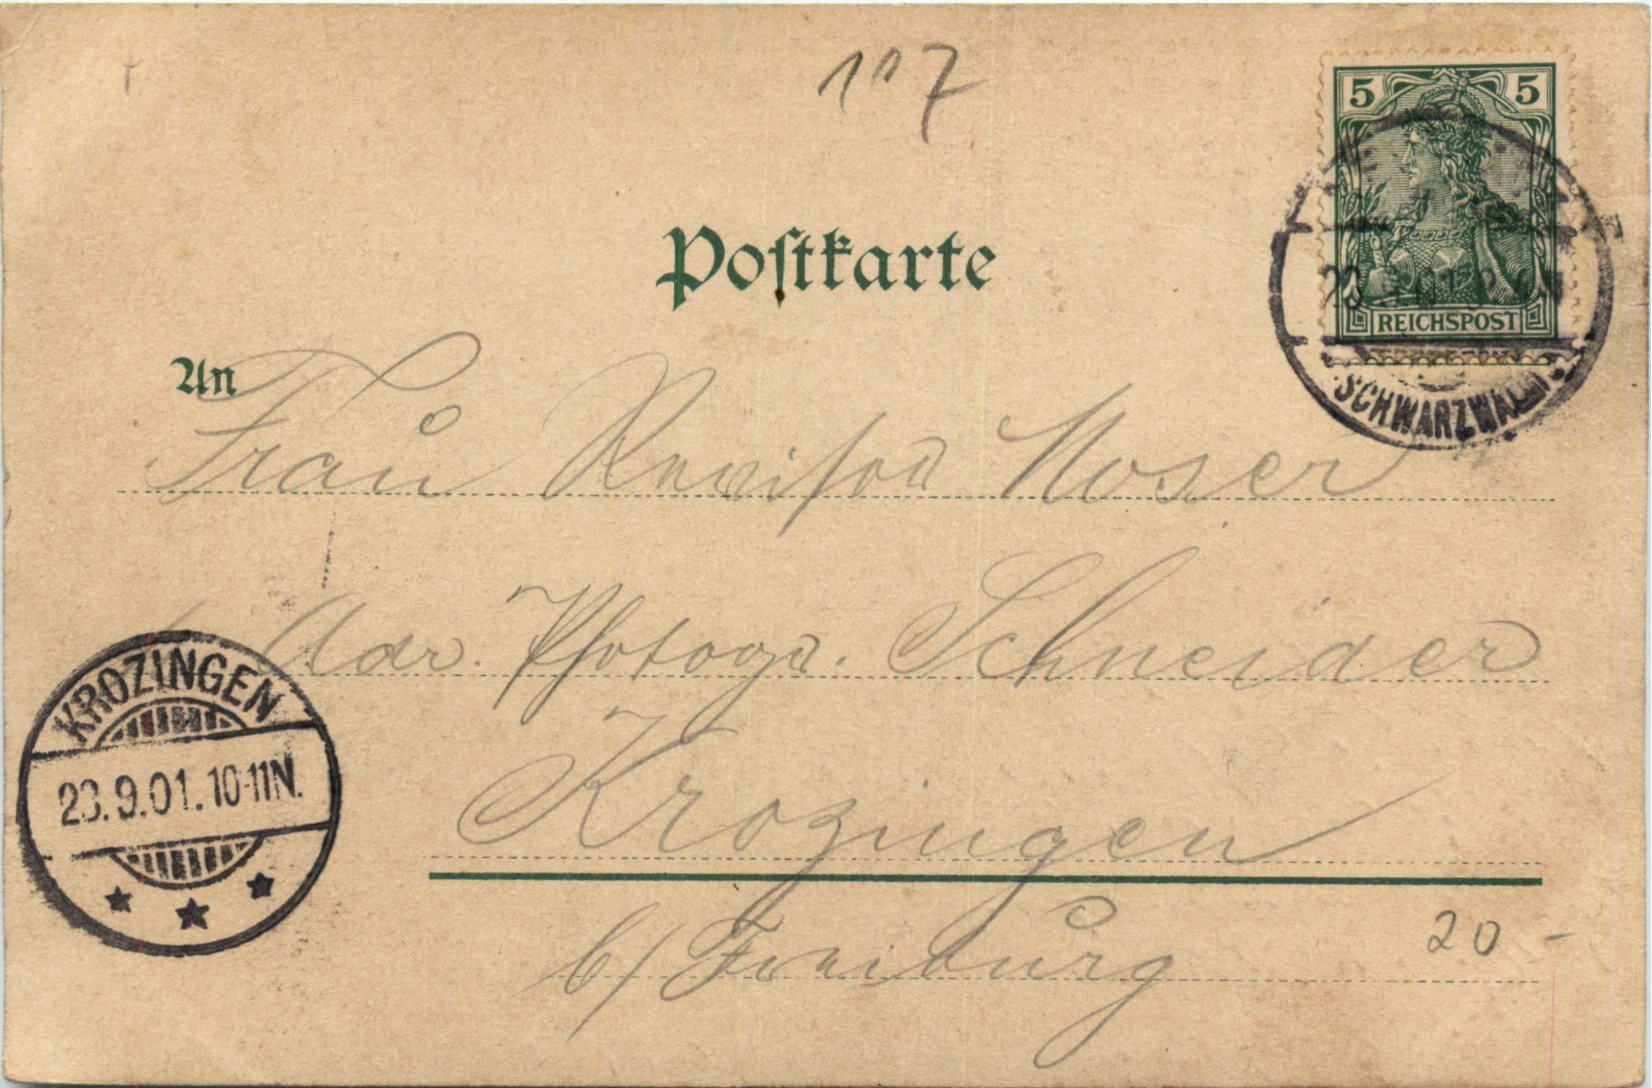 107
5 5
REICHSPOST
SCHWARZWALD
Postkarte
An
Frau Revisor Moser
Adr. Photogr. Schneider
KROZINGEN
23.9.01.10-11N.
Krozingen
b/ Freiburg
20 -